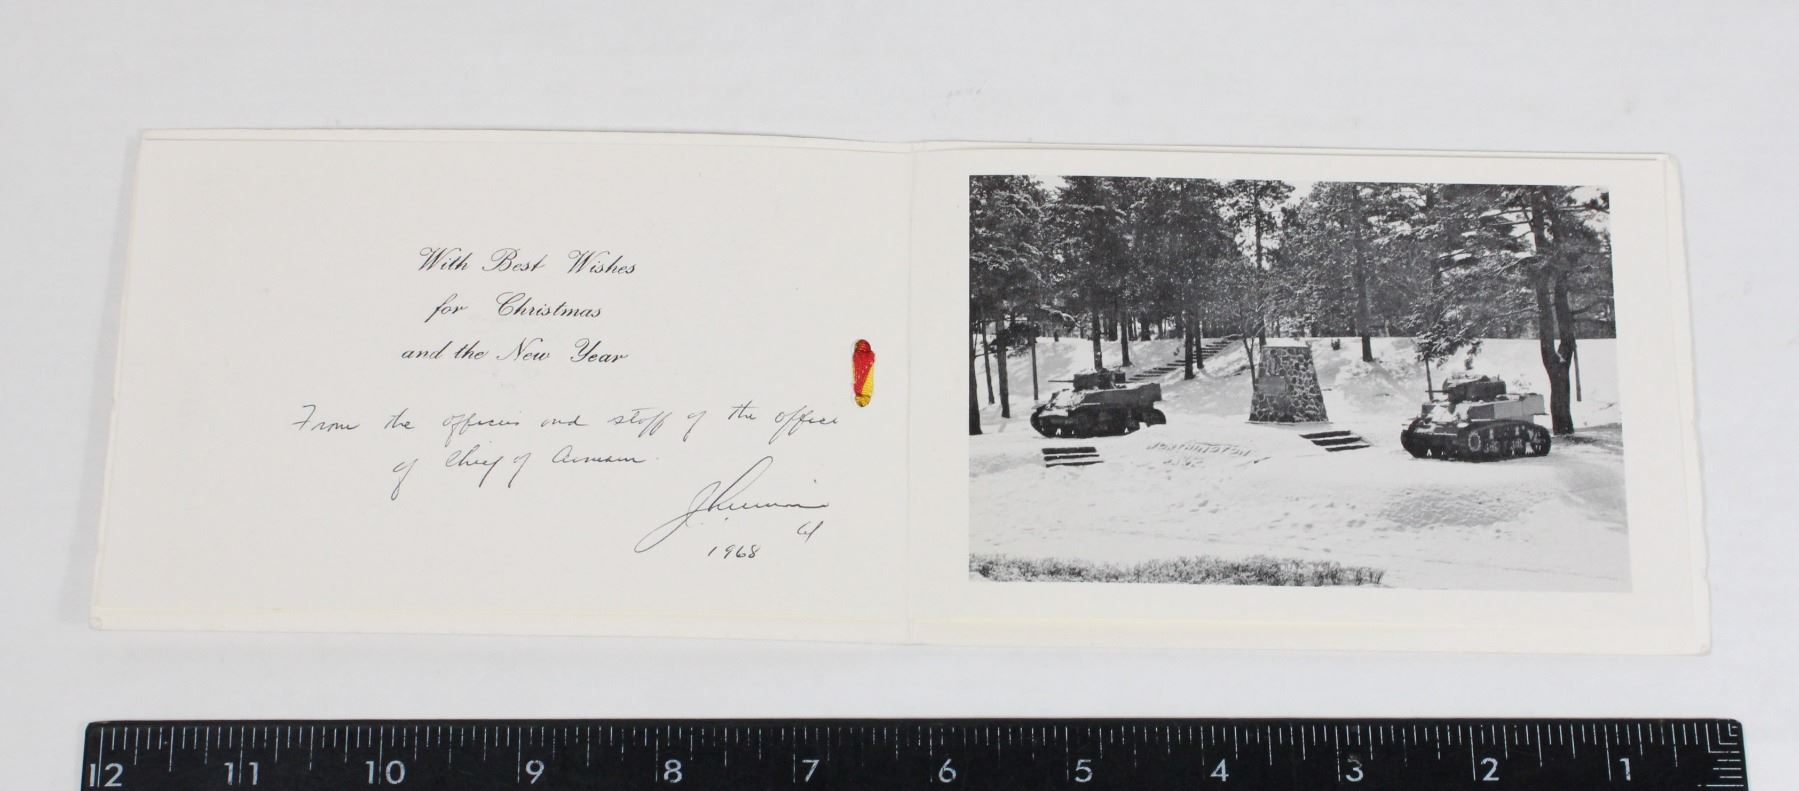 With Best Wishes
for Christmas
and the New Year
From the officers and staff of the office
of Chief of Armour.
Col
1968
WORTHINGTON
PARK
12 11 10 9 8 7 6 5 4 3 2 1